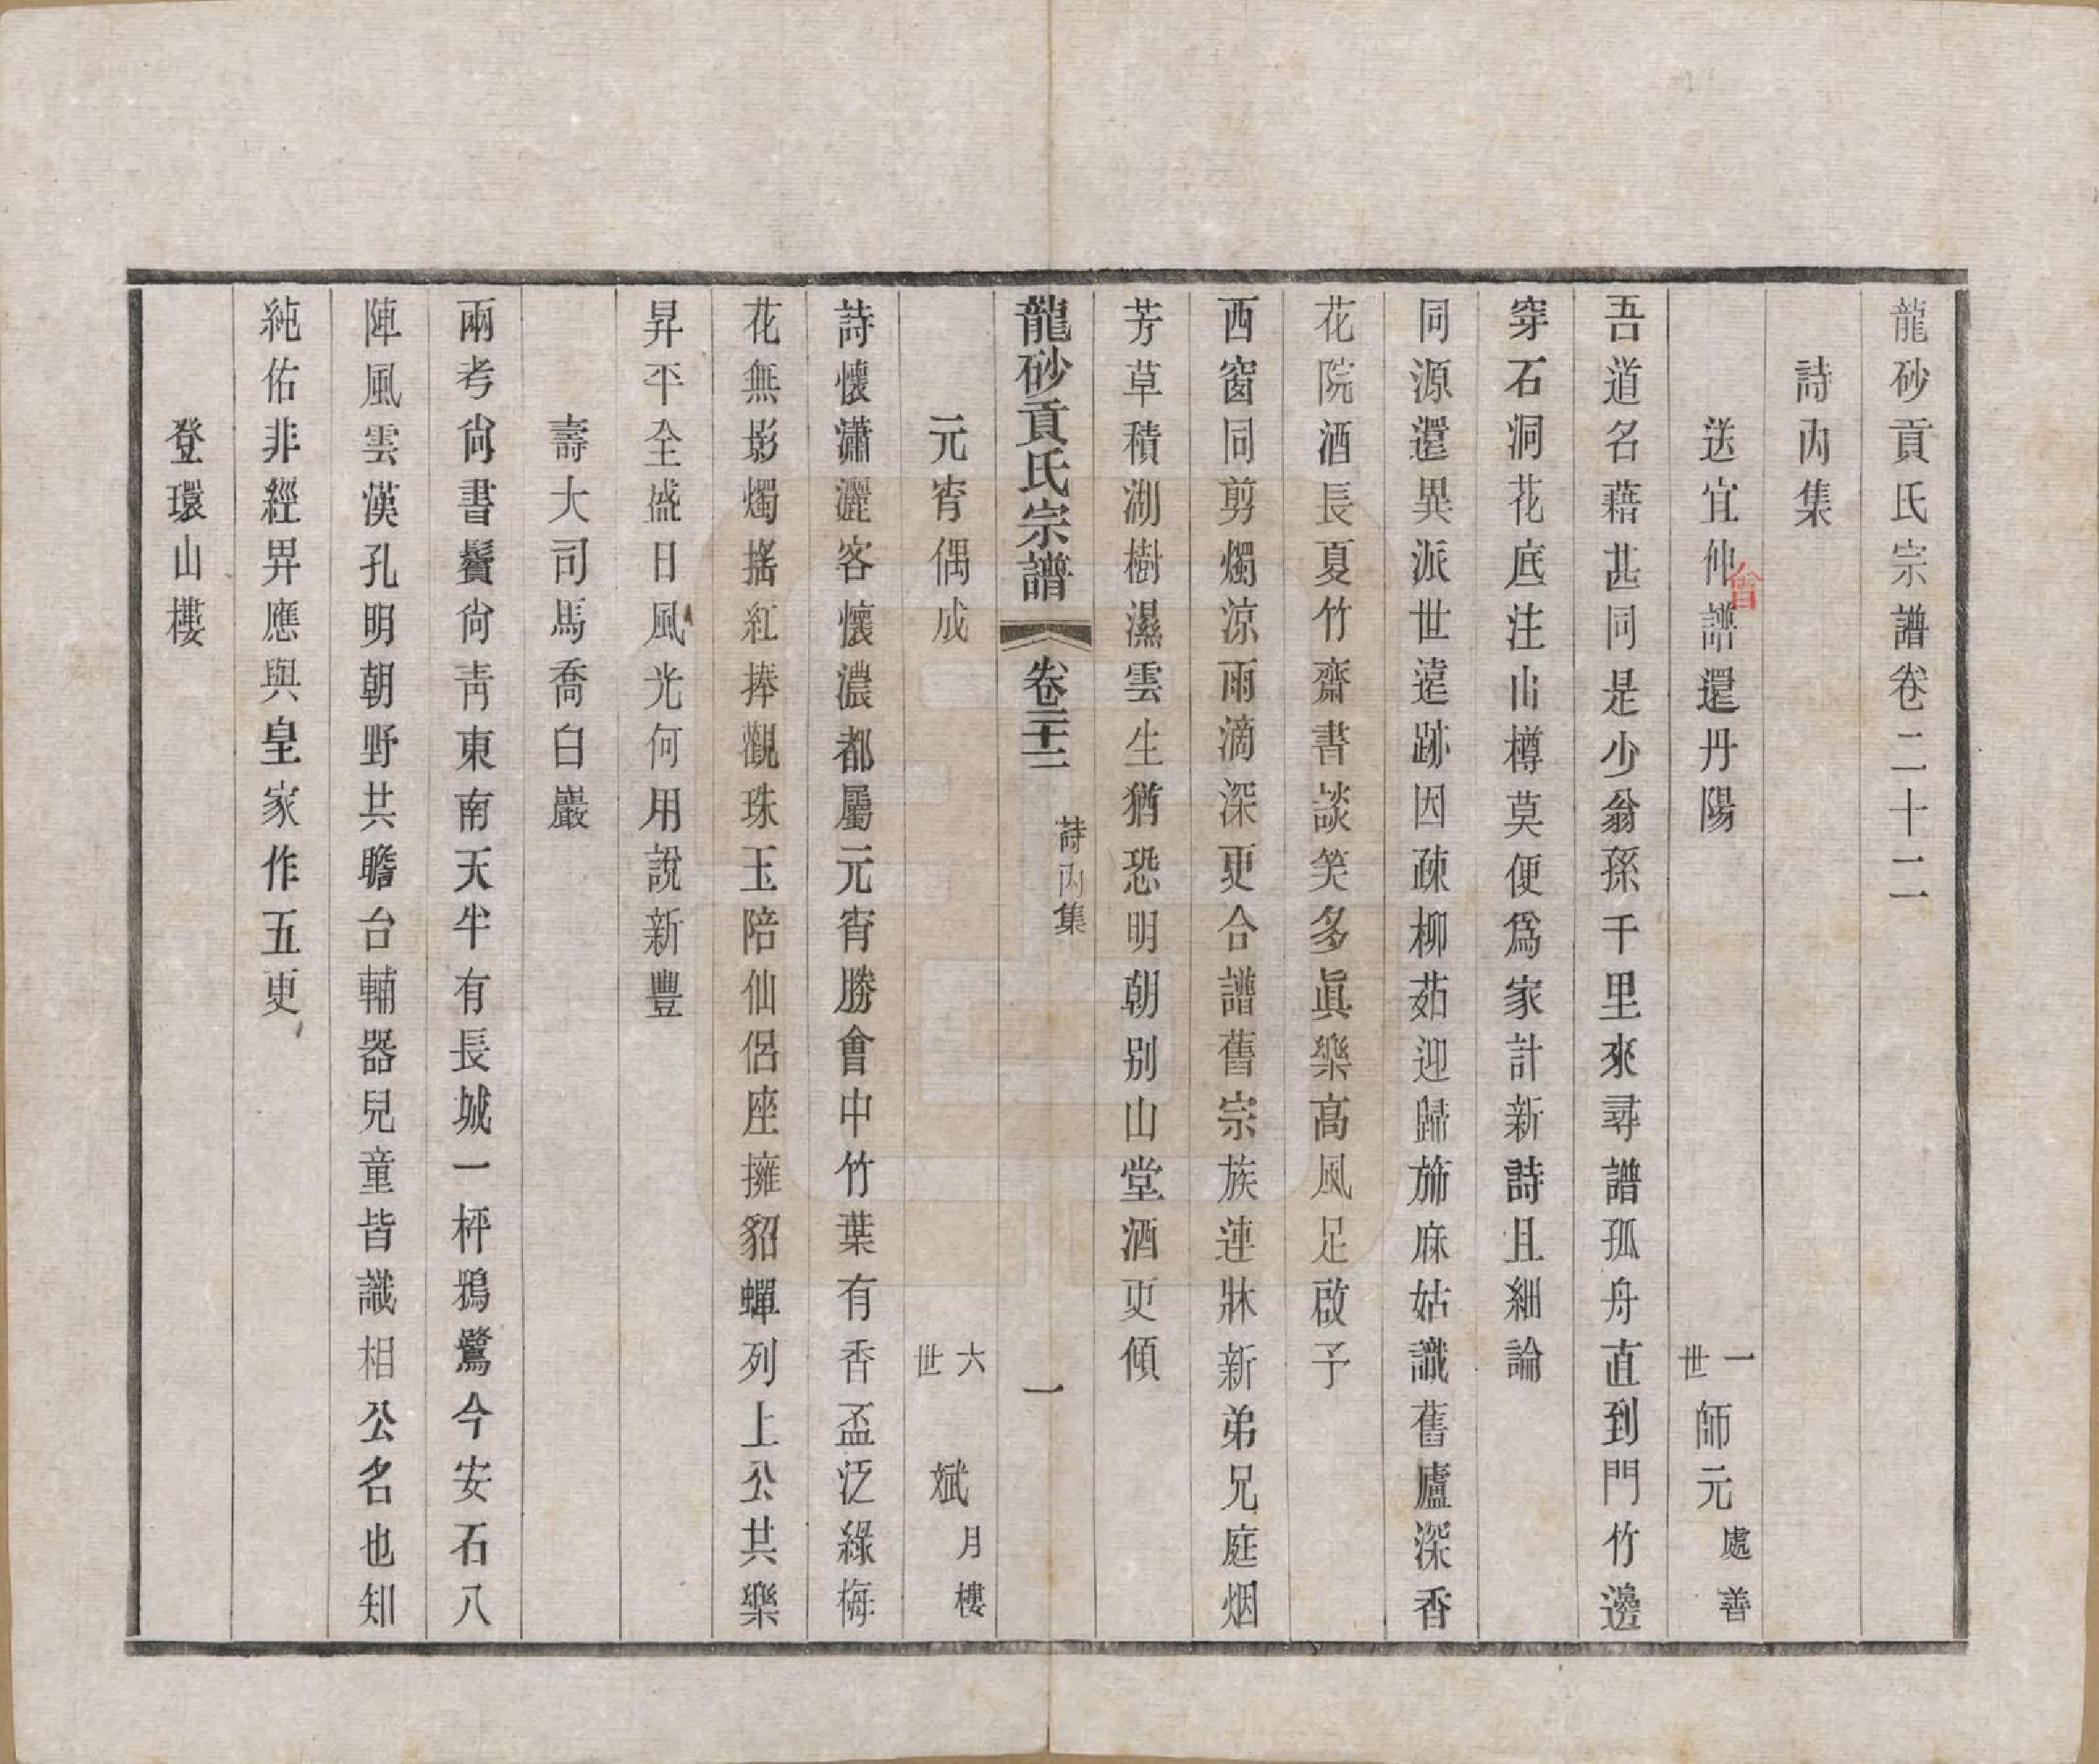 龍砂貢氏宗譜卷二十二
詩內集
送宜仲會譜還丹陽
一世師元處善
吾道名藉甚同是少翁孫千里來尋譜孤舟直到門竹邊
穿石洞花底注山樽莫便爲家計新詩且細論
同源還異派世遠跡因疎柳茹迎歸斾麻姑識舊廬深香
花院酒長夏竹齋書談笑多眞樂高風足啟予
西窗同剪燭涼雨滴深更合譜舊宗族連牀新弟兄庭烟
芳草積湖樹濕雲生猶恐明朝别山堂酒更傾
龍砂貢氏宗譜
卷二十二
詩內集
一
元宵偶成
六世斌月樓
詩懷瀟灑客懷濃都屬元宵勝會中竹葉有香盃泛綠梅
花無影燭搖紅捧觀珠玉陪仙侶座擁貂蟬列上公共樂
昇平全盛日風光何用說新豐
壽大司馬喬白巖
兩考尙書鬢尙靑東南天半有長城一枰鴉鷺今安石八
陣風雲漢孔明朝野共瞻台輔器兒童皆識相公名也知
純佑非經畀應與皇家作五更
登環山樓